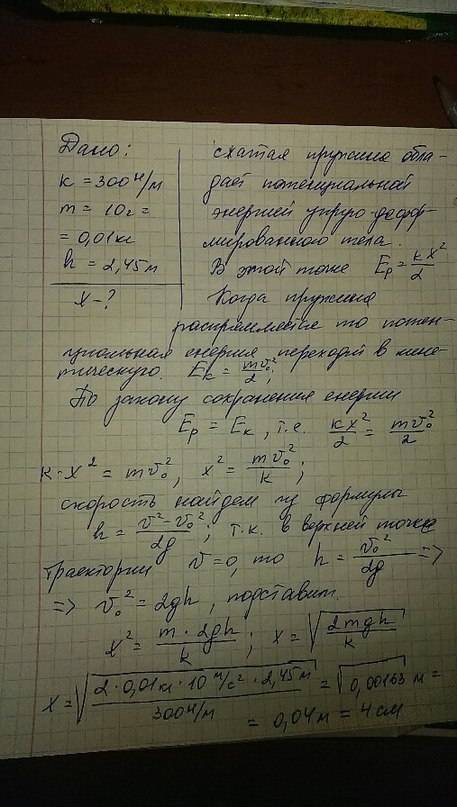 Дано:
k = 300 Н/м
m = 10г =
= 0,01 кг
h = 2,45 м
x - ?
сжатая пружина обла-
дает потенциальной
энергией упруго-дефор-
мированного тела.
В этой точке Eр = kx²/2
Когда пружина
распрямляется то потен-
циальная енергия переходит в кине-
тическую. Eк = mv₀²/2;
По закону сохранения енергии
Eр = Eк, т.е. kx²/2 = mv₀²/2
k·x² = mv₀², x² = mv₀²/k;
скорость найдем из формулы
h = v²-v₀²/2g; т.к. в верхней точке
траектории v=0, то h = v₀²/2g =>
=> v₀² = 2gh, подставим.
x² = m·2gh/k; x = √2mgh/k
x = √2·0,01кг·10 м/с²·2,45 м/300 Н/м = √0,00163 м =
= 0,04 м = 4 см